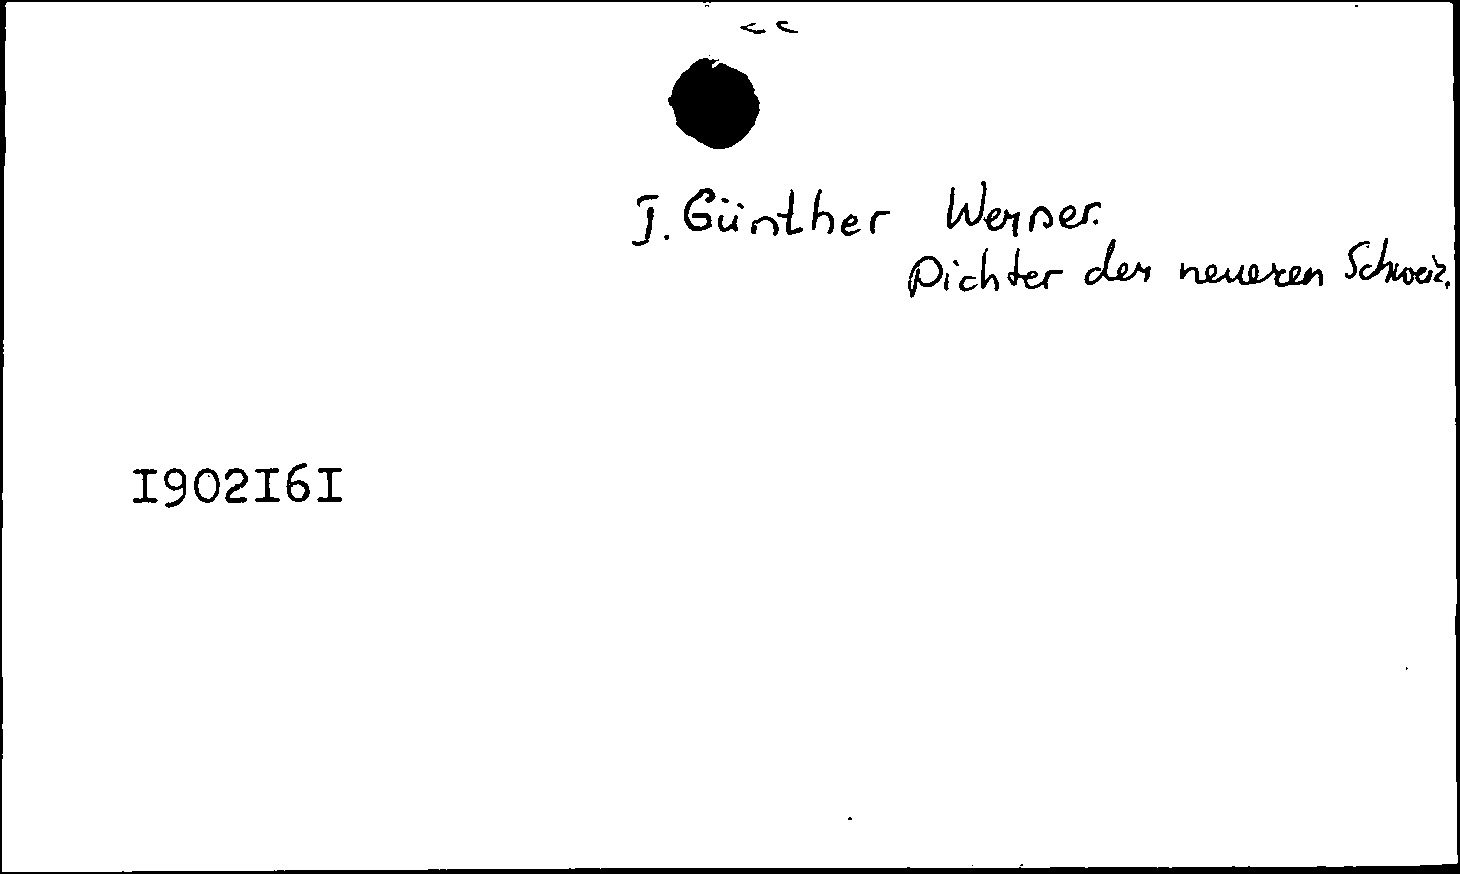 I. Günther Werner.
Dichter der neueren Schweiz.
I902I6I